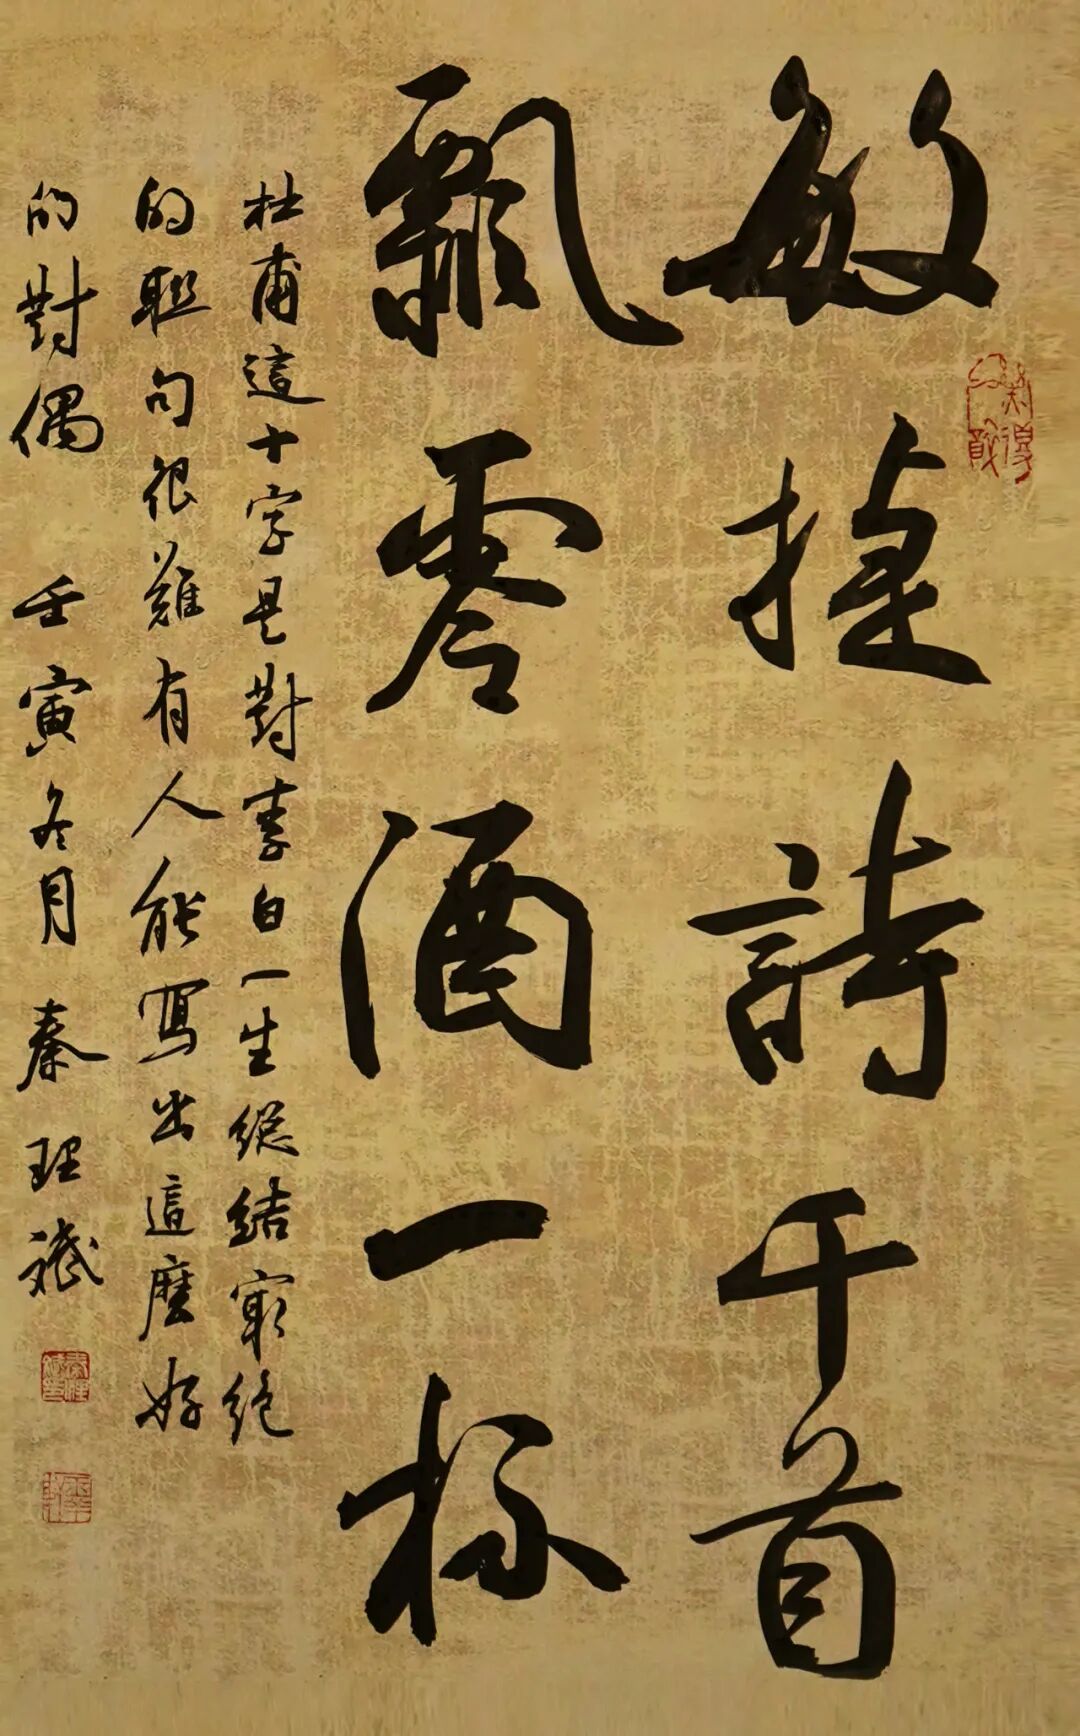 敏捷詩千首
飄零酒一杯
杜甫這十字是對李白一生總結窮绝
的联句很難有人能寫出這麼好
的對偶 壬寅冬月 秦理斌